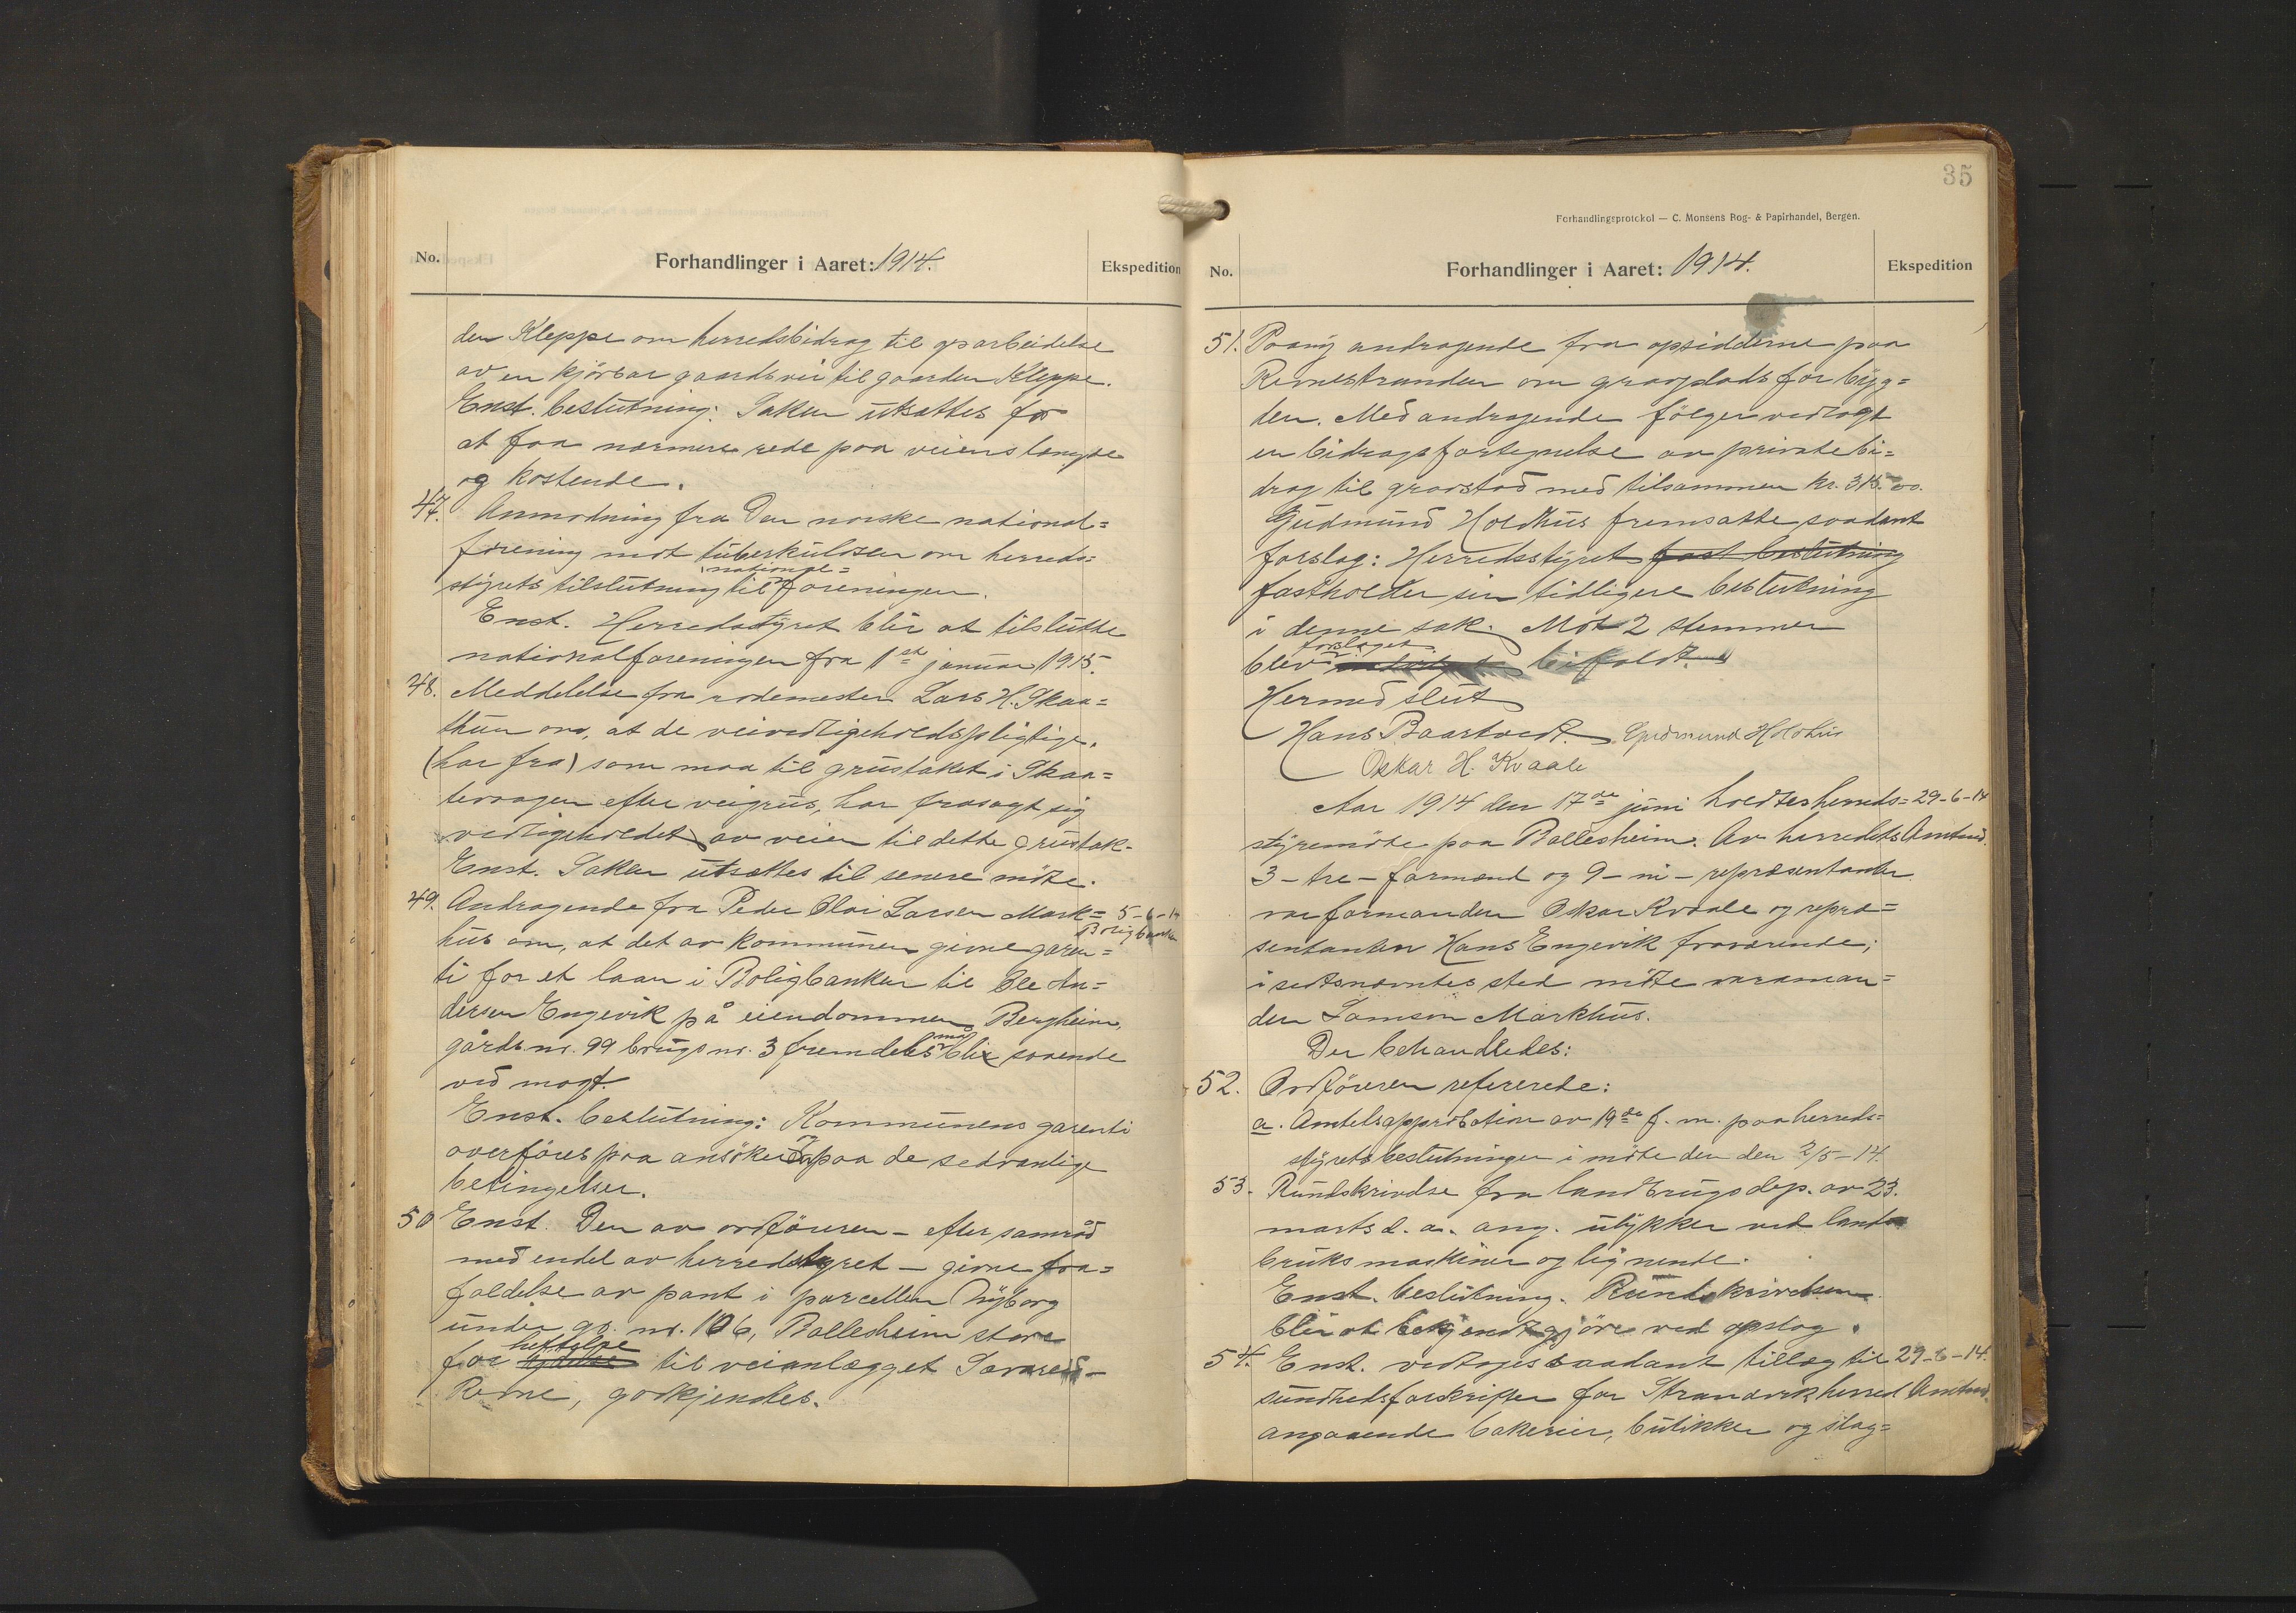 No.
Forhandlinger i Aaret: 1914.
Ekspedition
den Kleppe om herredsbidrag til oparbeidelse
av en kjörbar gaardsvei til gaarden Kleppe.
Enst. beslutning: Saken utsættes for
at faa nærmere rede paa veiens længde
og kostende.
47. Anmodning fra Den norske national=
forening mot tuberkulosen om herreds=
styrets tilslutning til national= foreningen.
Enst. Herredsstyret blir at tilslutte
nationalforeningen fra 1ste januar 1915.
48. Meddelelse fra rodemester Lars H. Skaa=
thun om, at de veivedligeholdspligtige.
(har fra) som maa til grustaket i Skaa=
tevaagen efter veigrus, har frasagt sig
vedligeholdet av veien til dette grustak.
Enst. Saken utsættes til senere möte.
49. Andragende fra Peder Olai Larsen Mark= 5-6-14
hus om, at det av kommunen givne garen= Boligbanken
ti for et laan i Boligbanken til Ole An=
dersen Engevik på eiendommen Bergheim,
gårds nr. 99 brugs nr. 3 fremdeles må bli staaende
ved magt.
Enst. beslutning: Kommunens garenti
overföres paa ansökeren paa de sedvanlige
betingelser.
50 Enst. Den av ordföreren - efter samråd
med endel av herredstyret - givne fra=
faldelse av pant i parcellen Nyborg
under gr. nr. 106, Ballesheim store
for heftelse til veianlægget Sævareid-
Revne, godkjendtes.
35
Forhandlingsprotokol — C. Monsens Bog- & Papirhandel, Bergen.
No.
Forhandlinger i Aaret: 1914.
Ekspedition
51. Paany andragende fra opsidderne paa
Revnestranden om gravplads for byg=
den. Med andragende fölger vedlagt
en bidragsfortegnelse av private bi=
drag til gravstad med tilsammen kr. 315.00.
Gudmund Holdhus fremsatte saadant
forslag: Herredsstyret fast beslutning
fastholder sin tidligere beslutning
i denne sak. Mot 2 stemmer
blev forslaget bifaldt.
Hermed slut
Hans Baartvedt. Gudmund Holdhus
Oskar H. Kvaale
Aar 1914 den 17de juni holdtes herreds= 29-6-14
styremöte paa Ballesheim. Av herredets Amtmd.
3 - tre - formænd og 9 - ni - repræsentanter
var formanden Oskar Kvaale og repræ=
sentanten Hans Engevik fraværende;
i sidstnævntes sted mötte varaman=
den Samson Markhus.
Der behandledes:
52. Ordföreren refererede:
a. Amtetsapprobation av 19de f. m. paa herreds=
styrets beslutninger i möte den den 2/5-14.
53. Rundskrivelse fra landbrugsdep. av 23.
marts d. a. ang. ulykker ved land
bruksmaskiner og lignende.
Enst. beslutning. Rundskrivelsen
blir at bekjendtgjöre ved opslag.
54. Enst. vedtoges saadant tillæg til 29-6-14.
sundhedsforskrifter for Strandvik herred Amtmd.
angaaende bakerier, butikker og slag=